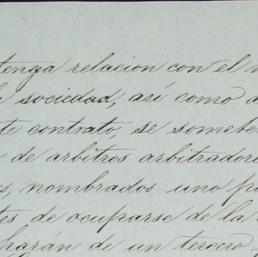 tenga relacion con el
sociedad, así como
te contrato, se somete
de arbitros arbitrador
s, nombrados uno po
tes de ocuparse de la
harán de un tercero